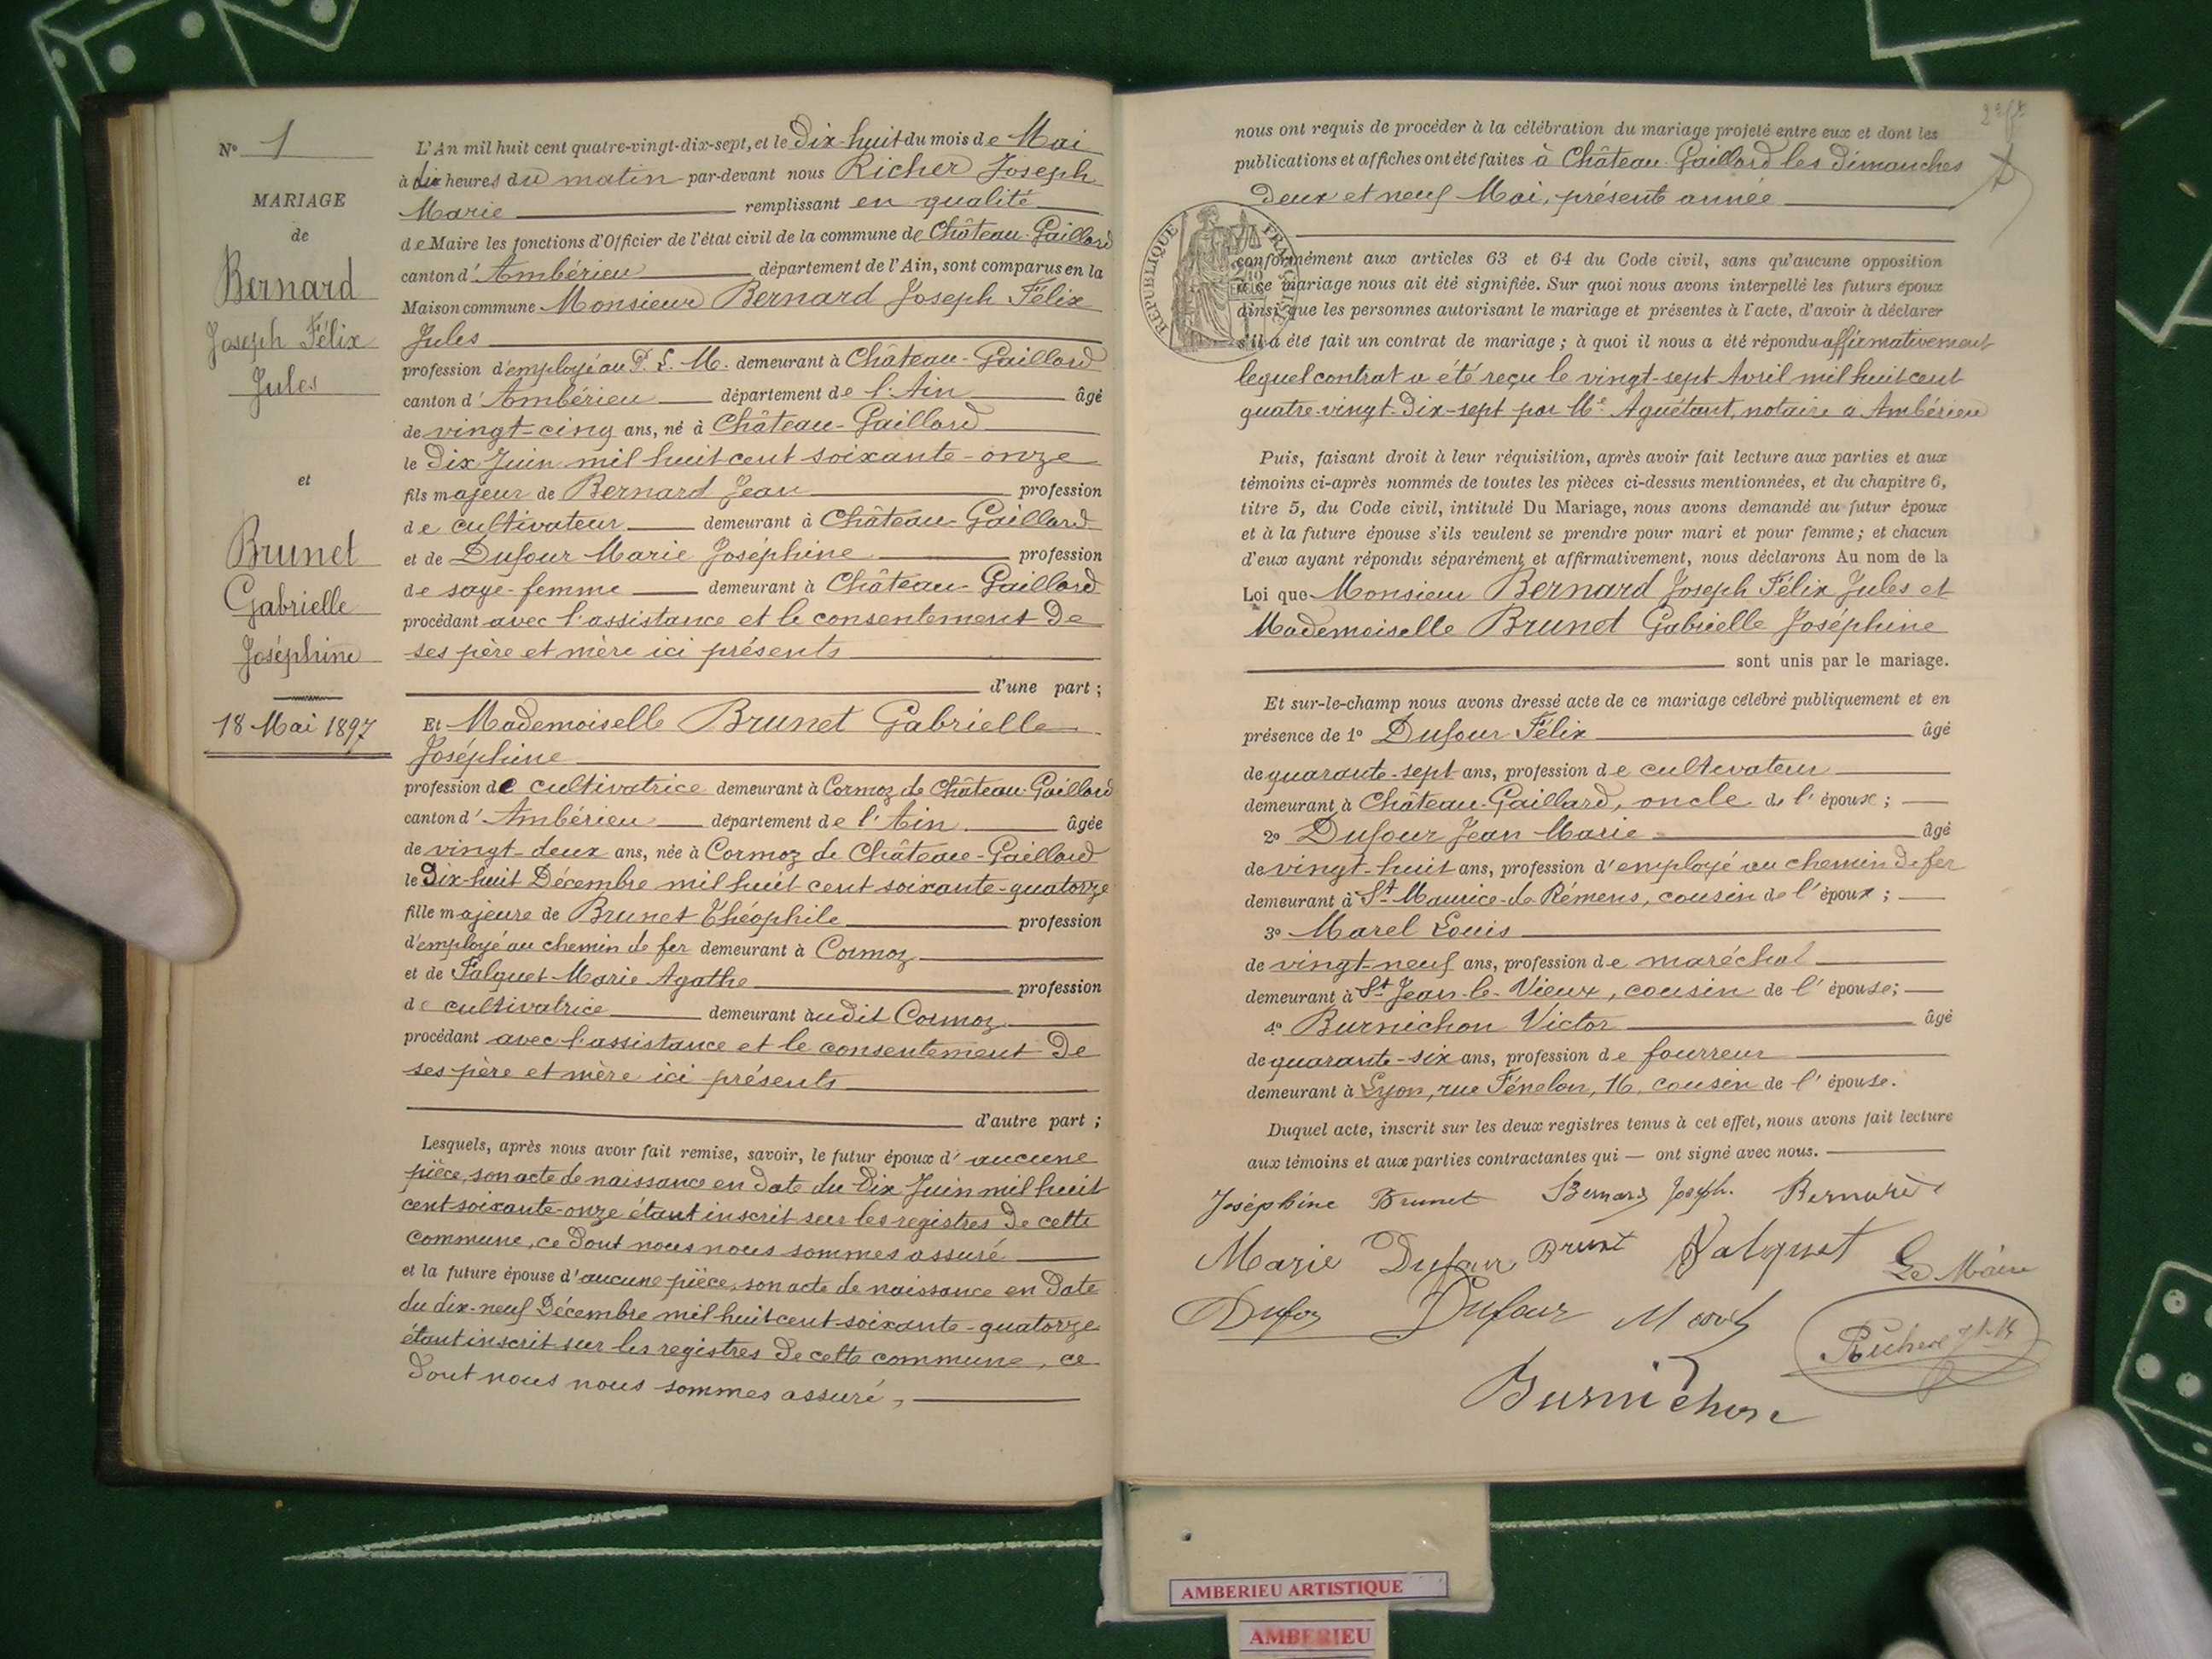 N° 1
MARIAGE
de
Bernard
Joseph Félix
Jules
et
Brunet
Gabrielle
Joséphine
18 Mai 1897
L'An mil huit cent quatre-vingt-dix-sept, et le Dix-huit du mois de Mai
à dix heures du matin par-devant nous Richer Joseph
Marie remplissant en qualité
de Maire les fonctions d'Officier de l'état civil de la commune de Château-Gaillard
canton d'Ambérieu département de l'Ain, sont comparus en la
Maison commune Monsieur Bernard Joseph Félix
Jules
profession d'employé au P. L. M. demeurant à Château-Gaillard
canton d'Ambérieu département de l'Ain âgé
de vingt-cinq ans, né à Château-Gaillard
le Dix Juin mil huit cent soixante-onze
fils majeur de Bernard Jean profession
de cultivateur demeurant à Château-Gaillard
et de Dufour Marie Joséphine profession
de sage-femme demeurant à Château-Gaillard
procédant avec l'assistance et le consentement de
ses père et mère ici présents
d'une part ;
Et Mademoiselle Brunet Gabrielle
Joséphine
profession de cultivatrice demeurant à Cormoz de Château-Gaillard
canton d'Ambérieu département de l'Ain âgée
de vingt-deux ans, née à Cormoz de Château-Gaillard
le Dix-huit Décembre mil huit cent soixante-quatorze
fille majeure de Brunet Théophile profession
d'employé au chemin de fer demeurant à Cormoz
et de Falquet Marie Agathe profession
de cultivatrice demeurant audit Cormoz
procédant avec l'assistance et le consentement de
ses père et mère ici présents
d'autre part ;
Lesquels, après nous avoir fait remise, savoir, le futur époux d'aucune
pièce, son acte de naissance en date du dix Juin mil huit
cent soixante-onze étant inscrit sur les registres de cette
commune, ce dont nous nous sommes assuré
et la future épouse d'aucune pièce, son acte de naissance en date
du dix-neuf Décembre mil huit cent soixante-quatorze
étant inscrit sur les registres de cette commune, ce
dont nous nous sommes assuré,
nous ont requis de procéder à la célébration du mariage projeté entre eux et dont les
publications et affiches ont été faites à Château-Gaillard les dimanches
deux et neuf Mai, présente année
RÉPUBLIQUE FRANÇAISE
conformément aux articles 63 et 64 du Code civil, sans qu'aucune opposition
à ce mariage nous ait été signifiée. Sur quoi nous avons interpellé les futurs époux
ainsi que les personnes autorisant le mariage et présentes à l'acte, d'avoir à déclarer
s'il a été fait un contrat de mariage ; à quoi il nous a été répondu affirmativement
lequel contrat a été reçu le vingt-sept Avril mil huit cent
quatre-vingt-dix-sept par Me Aguétant, notaire à Ambérieu
Puis, faisant droit à leur réquisition, après avoir fait lecture aux parties et aux
témoins ci-après nommés de toutes les pièces ci-dessus mentionnées, et du chapitre 6,
titre 5, du Code civil, intitulé Du Mariage, nous avons demandé au futur époux
et à la future épouse s'ils veulent se prendre pour mari et pour femme ; et chacun
d'eux ayant répondu séparément et affirmativement, nous déclarons Au nom de la
Loi que Monsieur Bernard Joseph Félix Jules et
Mademoiselle Brunet Gabrielle Joséphine
sont unis par le mariage.
Et sur-le-champ nous avons dressé acte de ce mariage célébré publiquement et en
présence de 1° Dufour Félix âgé
de quarante-sept ans, profession de cultivateur
demeurant à Château-Gaillard, oncle de l'époux ;
2° Dufour Jean Marie âgé
de vingt-huit ans, profession d'employé au chemin de fer
demeurant à St-Maurice-de-Rémens, cousin de l'époux ;
3° Marel Louis
de vingt-neuf ans, profession de maréchal
demeurant à St-Jean-le-Vieux, cousin de l'épouse ;
4° Burnichon Victor âgé
de quarante-six ans, profession de fourreur
demeurant à Lyon, rue Fénelon, 16, cousin de l'épouse.
Duquel acte, inscrit sur les deux registres tenus à cet effet, nous avons fait lecture
aux témoins et aux parties contractantes qui — ont signé avec nous.
Joséphine Brunet Bernard Joseph. Bernard
Marie Dufour Brunet Falquet Le Maire
Dufour Marel Richer
Burnichon
AMBERIEU ARTISTIQUE
AMBERIEU